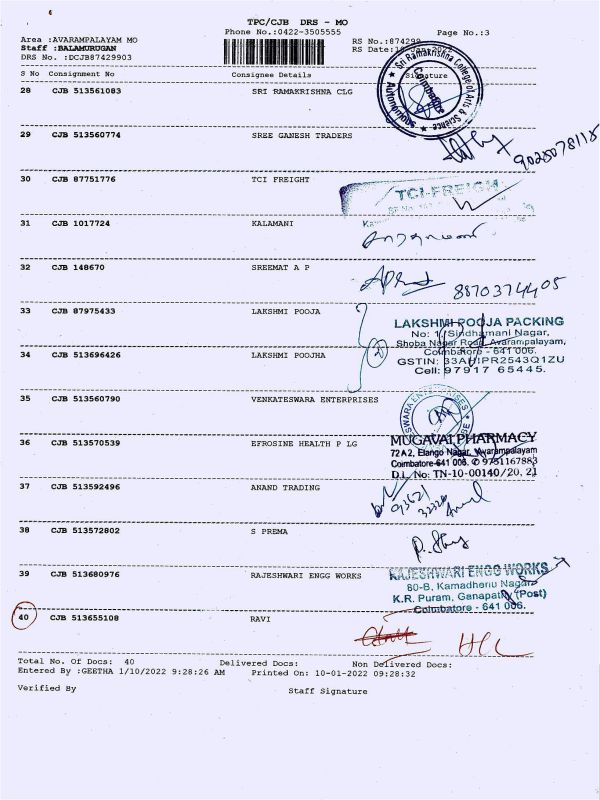 TPC/CJB DRS - MO
Phone No.:0422-3505555
Page No.:3
Area :AVARAMPALAYAM MO
Staff :BALAMURUGAN
DRS No. :DCJB87429903
RS No.:874299
RS Date:10 Jan 2022
S No Consignment No Consignee Details Signature
28 CJB 513561083 SRI RAMAKRISHNA CLG
Sri Ramakrishna College of Arts & Science
Coimbatore
Autonomous
29 CJB 513560774 SREE GANESH TRADERS
30 CJB 87751776 TCI FREIGHT
TCI-FREIGH
31 CJB 1017724 KALAMANI
32 CJB 148670 SREEMAT A P
8870374405
33 CJB 87975433 LAKSHMI POOJA
LAKSHMI POOJA PACKING
No: 1, Sindhamani Nagar,
Shoba Nagar Road, Avarampalayam,
Coimbatore - 641 006.
GSTIN: 33AHIPR2543Q1ZU
Cell: 97917 65445.
34 CJB 513696426 LAKSHMI POOJHA
2
35 CJB 513560790 VENKATESWARA ENTERPRISES
36 CJB 513570539 EFROSINE HEALTH P LG
MUGAVAI PHARMACY
72A2, Elango Nagar, Avarampalayam
Coimbatore-641 006. ✆ 9751167883
D.L. No: TN-10-00140/20, 21
37 CJB 513592496 ANAND TRADING
38 CJB 513572802 S PREMA
39 CJB 513680976 RAJESHWARI ENGG WORKS
RAJESHWARI ENGG WORKS
60-B, Kamadhenu Nagar
K.R. Puram, Ganapathy (Post)
Coimbatore - 641 006.
40 CJB 513655108 RAVI
Total No. Of Docs: 40 Delivered Docs: Non Delivered Docs:
Entered By :GEETHA 1/10/2022 9:28:26 AM Printed On: 10-01-2022 09:28:32
Verified By Staff Signature